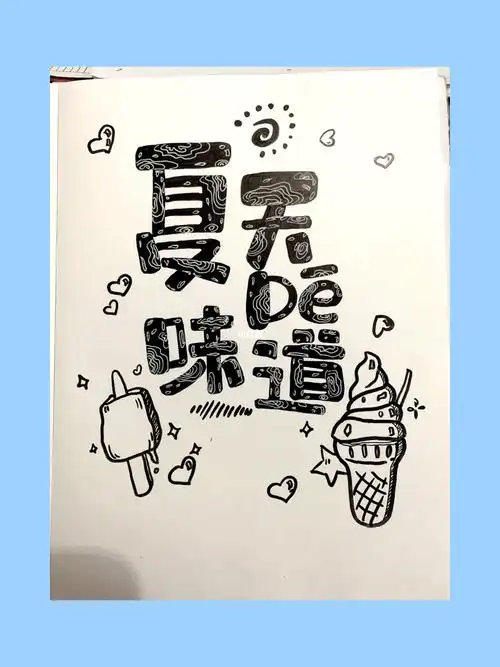 夏天
Dē
味道